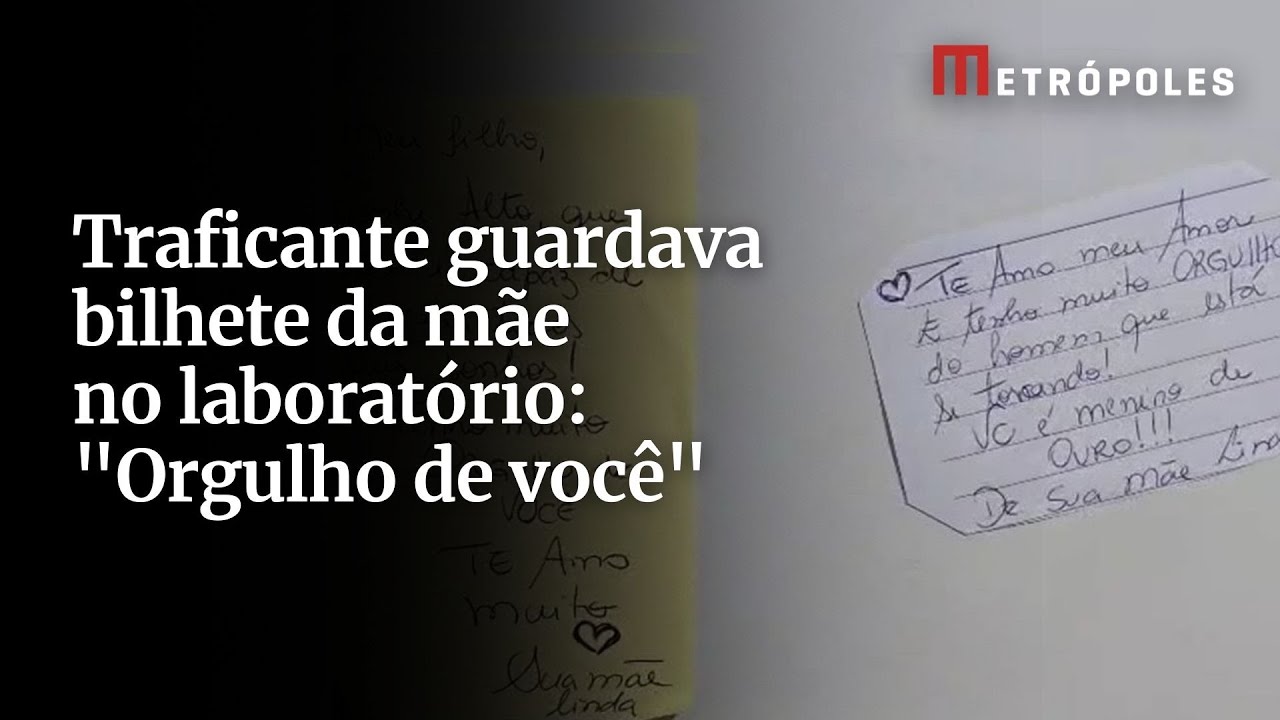 METRÓPOLES
Traficante guardava
bilhete da mãe
no laboratório:
"Orgulho de você"
Meu filho,
Alto, que
de
muito
VOCÊ
TE Amo
muito
Sua mãe
linda
TE Amo meu Amor
E tenho muito ORGULHO
do homem que está
se tornando!
VC é menino de
OURO!!!
De sua mãe Lind